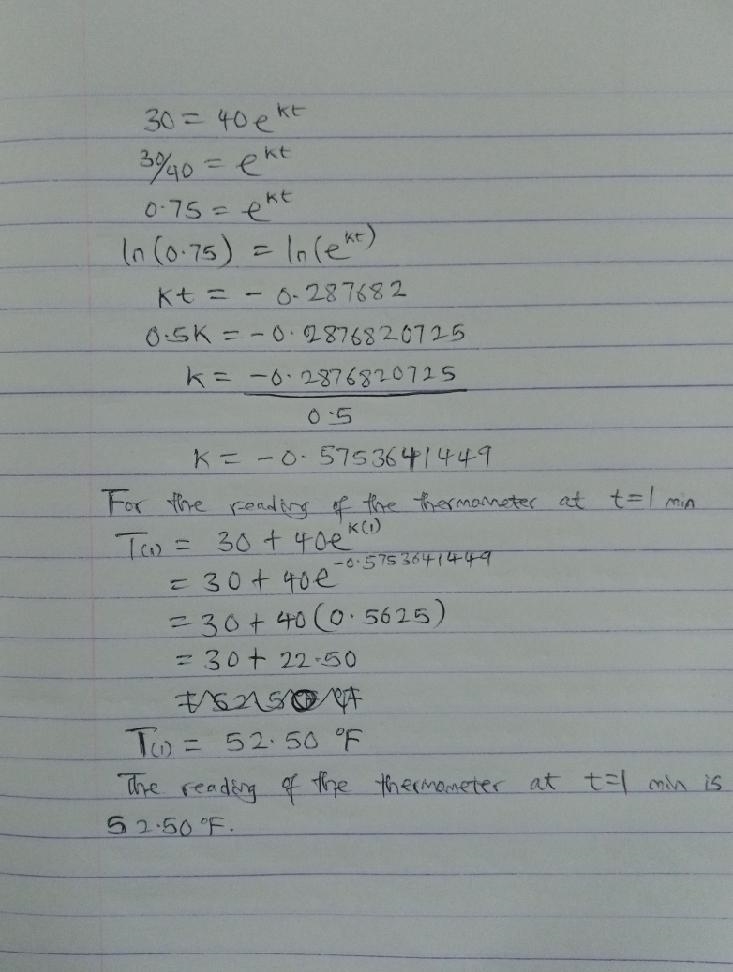 30 = 40e^kt
30/40 = e^kt
0.75 = e^kt
ln(0.75) = ln(e^kt)
kt = - 0.287682
0.5K = -0.2876820725
k = -0.2876820725
0.5
K = -0.5753641449
For the reading of the thermometer at t=1 min
T(1) = 30 + 40e^k(1)
= 30 + 40e^-0.5753641449
= 30 + 40(0.5625)
= 30 + 22.50
T(1) = 52.50 °F
The reading of the thermometer at t=1 min is
52.50 °F.